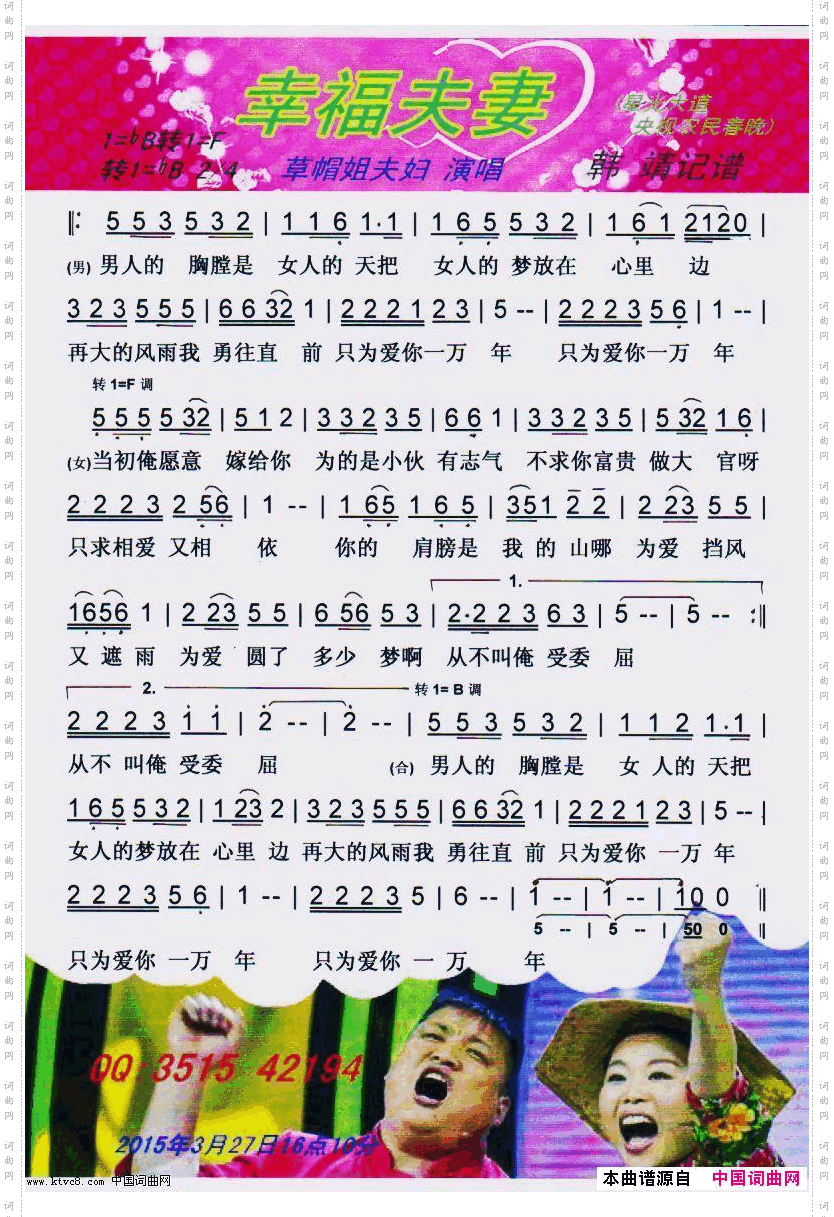 幸福夫妻
(星光大道
央视农民春晚)
1=♭B转1=F
转1=♭B 2/4 草帽姐夫妇 演唱 韩 靖记谱
‖: 5 5 3 5 3 2 | 1 1 6 1·1 | 1 6 5 5 3 2 | 1 6 1 2120 |
(男) 男人的 胸膛是 女人的 天把 女人的 梦放在 心里 边
3 2 3 5 5 5 | 6 6 32 1 | 2 2 2 1 2 3 | 5 -- | 2 2 2 3 5 6 | 1 -- |
再大的风雨我 勇往直 前 只为爱你一万 年 只为爱你一万 年
转 1=F 调
5 5 5 5 32 | 5 1 2 | 3 3 2 3 5 | 6 6 1 | 3 3 2 3 5 | 5 32 1 6 |
(女)当初俺愿意 嫁给你 为的是小伙 有志气 不求你富贵 做大 官呀
2 2 2 3 2 56 | 1 -- | 1 65 1 6 5 | 351 2 2 | 2 23 5 5 |
只求相爱 又相 依 你的 肩膀是 我 的 山哪 为爱 挡风
1.
1656 1 | 2 23 5 5 | 6 56 5 3 | 2·2 2 3 6 3 | 5 -- | 5 -- :‖
又 遮 雨 为爱 圆了 多少 梦啊 从不叫俺 受委 屈
2. 转 1= B 调
2 2 2 3 1 1 | 2 -- | 2 -- | 5 5 3 5 3 2 | 1 1 2 1·1 |
从不 叫俺 受委 屈 (合) 男人的 胸膛是 女 人的 天把
1 6 5 5 3 2 | 1 23 2 | 3 2 3 5 5 5 | 6 6 32 1 | 2 2 2 1 2 3 | 5 -- |
女人的梦放在 心里 边 再大的风雨我 勇往直 前 只为爱你 一万 年
2 2 2 3 5 6 | 1 -- | 2 2 2 3 5 | 6 -- | 1 -- | 1 -- | 10 0 ‖
5 -- | 5 -- | 50 0 ‖
只为爱你 一万 年 只为爱你 一 万 年
QQ:3515 42194
2015年3月27日16点10分
www.ktvc8.com 中国词曲网
本曲谱源自 中国词曲网